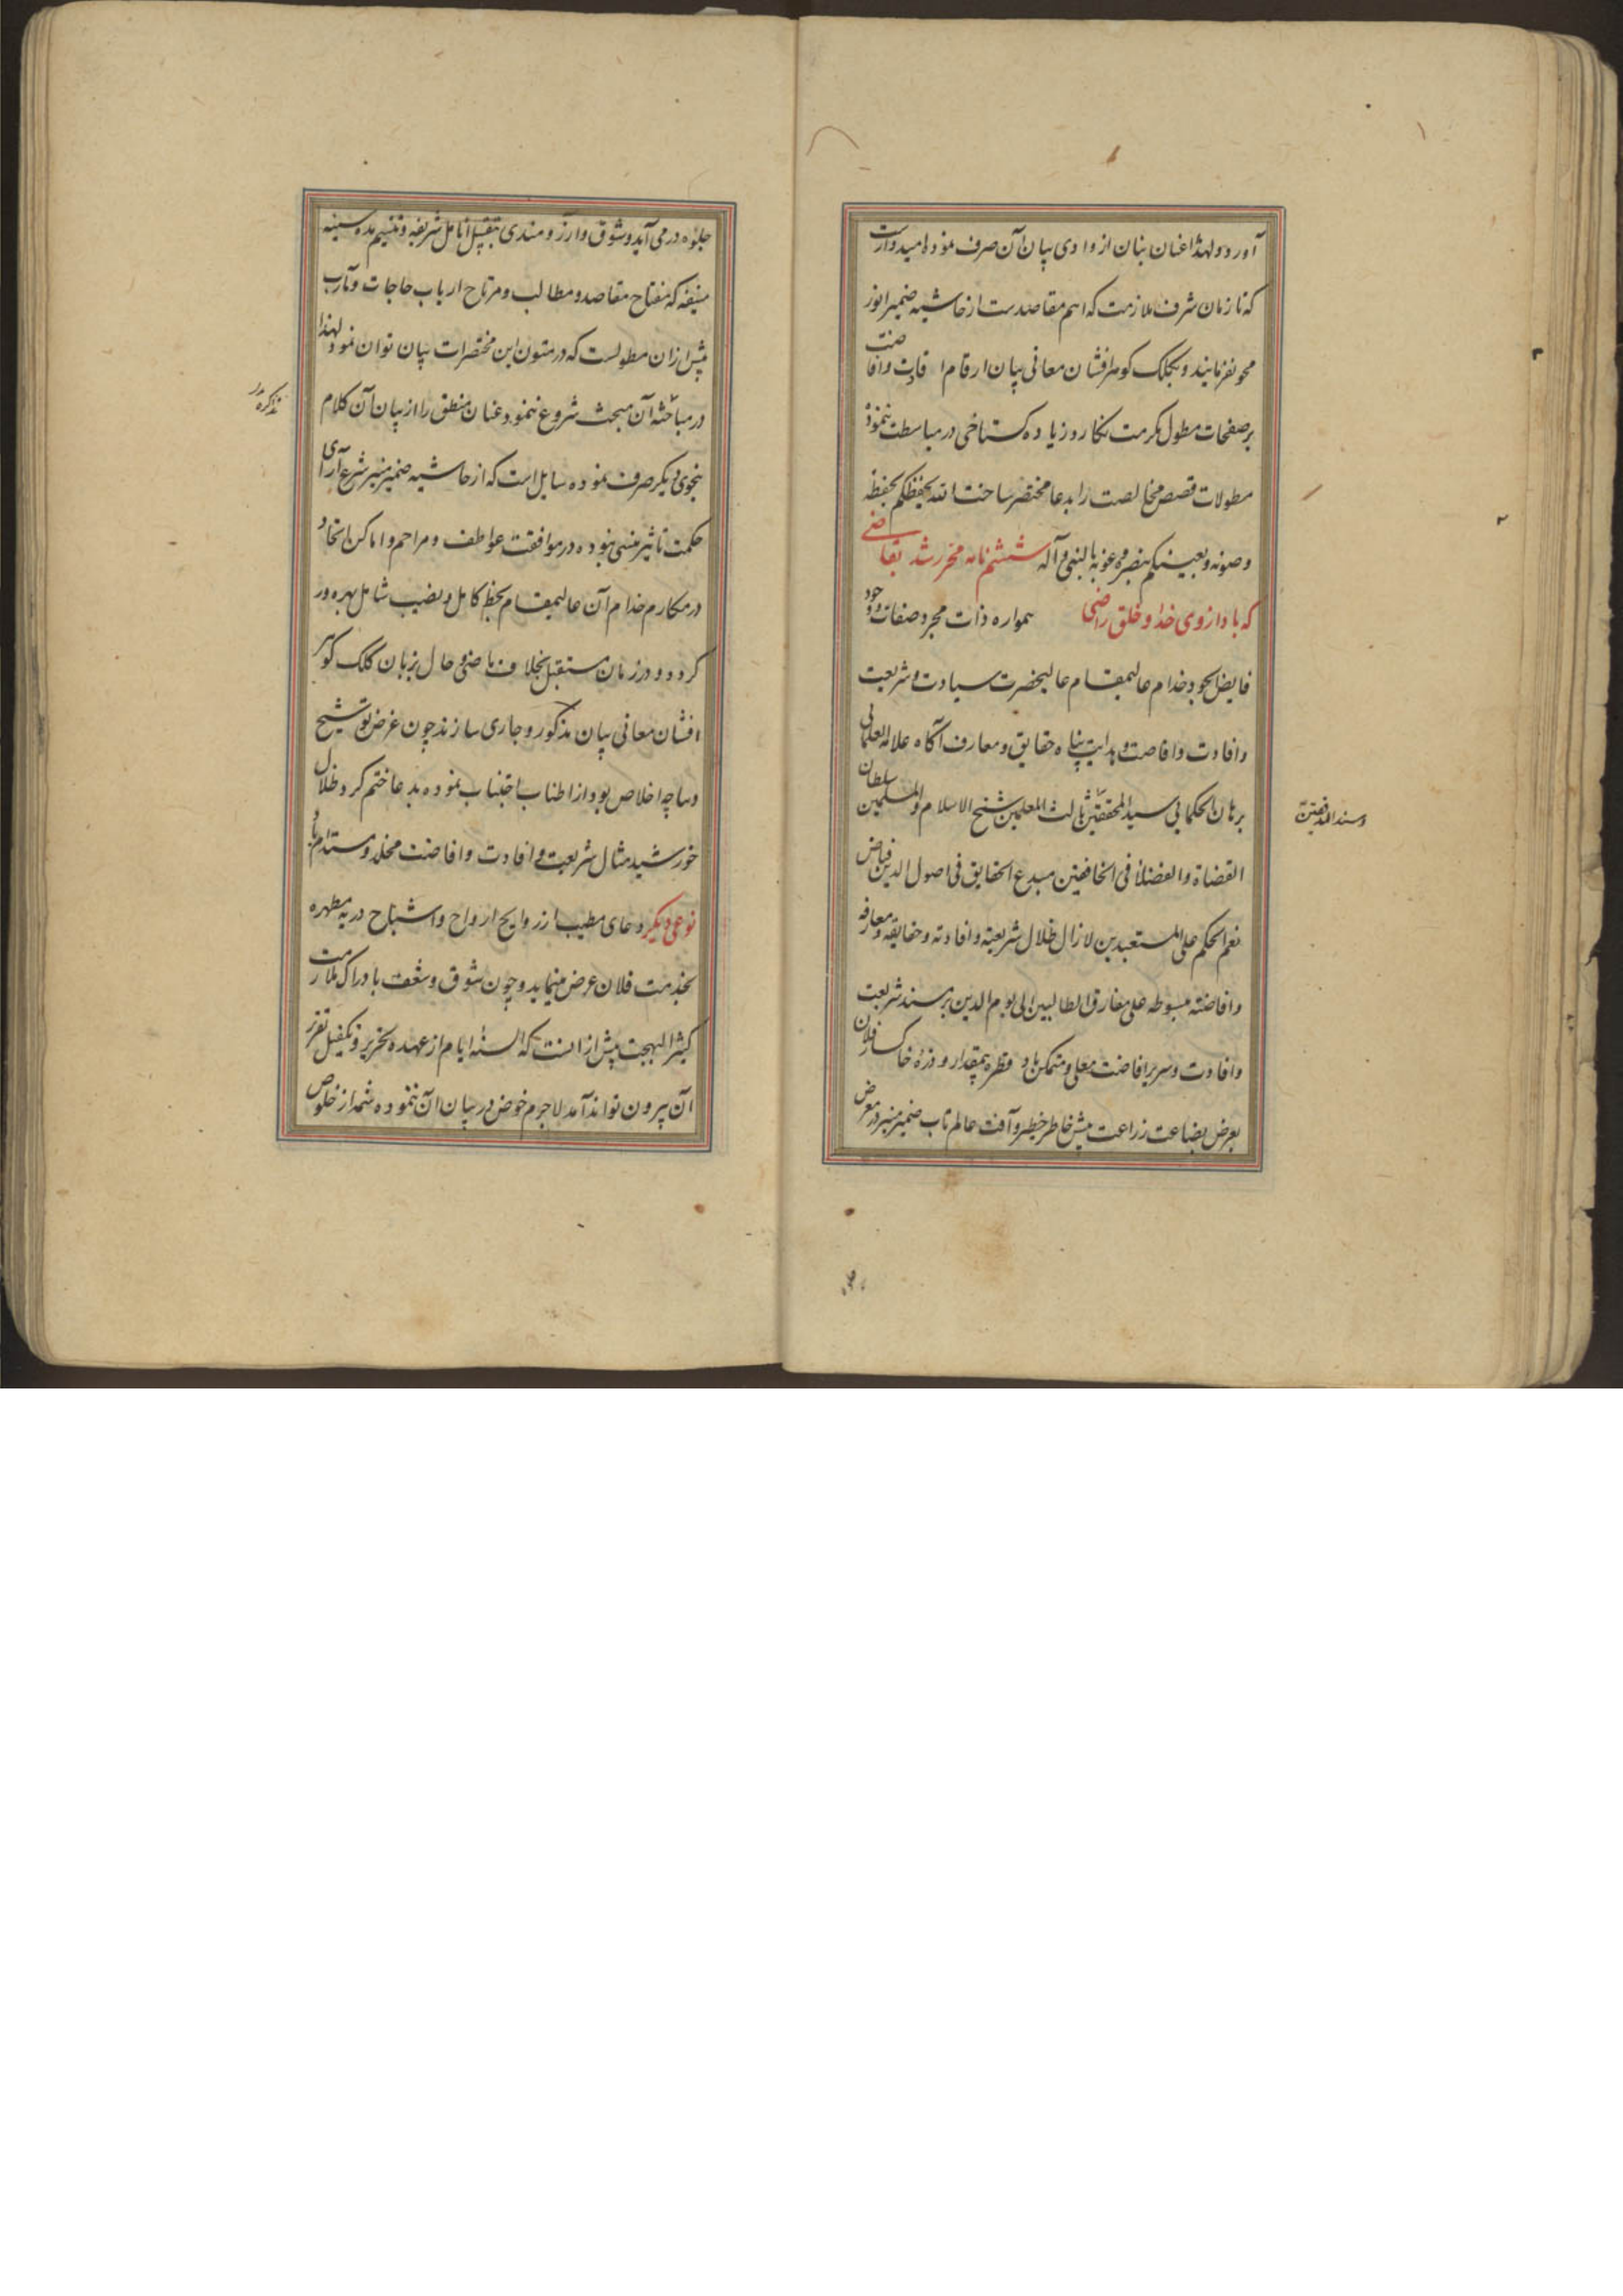 آورد و لهذا عنان بنان از وادی بیان آن صرف نموده امیدوارست
که تا زمان شرف ملازمت که اهم مقاصدست از حاشیه ضمیر انور
محو نفرمایند و بکلک گوهرافشان معانی بیان ارقام افادت وافاضت
بر صفحات مطول مکرمت نگارد زیاده گستاخی در مباسطت ننموده
مطولات قصص مخالصت را بدعا مختصر ساخت الله یحفظکم بحفظه
وصونه ویعینکم بنصره وعونه بالنبی وآله ششم نامه محرر شد بقاضی
که باد از وی خدا و خلق راضی همواره ذات مجرد صفات و وجود
فایض الجود خدام عالیمقام عالیحضرت سیادت و شریعت
وافادت وافاضت و هدایت پناه حقایق و معارف آگاه علامه العلمائی
برهان الحکمائی سید المحققین ثالث المعلمین شیخ الاسلام والمسلمین سلطان
وسند المدققین
القضاة والفضلاء فی الخافقین مبدع الحقایق فی اصول الدین فیاض
نعم الحکم علی المستعبدین لازال ظلال شریعته وافادته وحقایقه ومعارفه
وافاضته مبسوطه علی مفارق الطالبین الی یوم الدین بر مسند شریعت
وافادت و سریر افاضت معلی و متمکن باد قطره بیمقدار و ذره خاکسار فلان
بعرض بضاعت زراعت پیش خاطر خطیر و آفت عالم تاب ضمیر منیر در معرض
جلوه درمی آید و شوق و آرزومندی بتقبیل انامل شریفه و تنسیم سده سنیه
منیفه که مفتاح مقاصد و مطالب و مرتاح ارباب حاجات و مآرب
پیش ازان مطولست که در متون این مختصرات بیان توان نمود لهذا
در مباحثه آن مبحث شروع ننمود عنان منطق را از بیان آن کلام
تذکره در
بنحوی دیگر صرف نموده سایل است که از حاشیه ضمیر منیر شرع آرای
حکمت تاثیر منسی نبوده در موافقت عواطف و مراحم و اماکن اتحاد
در مکارم خدام آن عالیمقام بحظ کامل و نصیب شامل بهره ور
گردد و در زمان مستقبل بخلاف ماضی و حال بزبان کلک گوهر
افشان معانی بیان مذکور و جاری سازند چون غرض توشیح
دیباچه اخلاص بود از اطناب اجتناب نموده بدعا ختم کرد ظلال
خورشید مثال شریعت و افادت وافاضت مخلد و مستدام باد
نوعی دیگر دعای مطیب از روایح ارواح و اشباح دریه مطهره
بخدمت فلان عرض مینماید و چون شوق و شغف بادراک ملازمت
کثیر البهجت پیش از انست که السنه ایام از عهده تحریر و تکفیل تقریر
آن بیرون تواند آمد لاجرم خوض در بیان آن ننموده شمه از خلوص